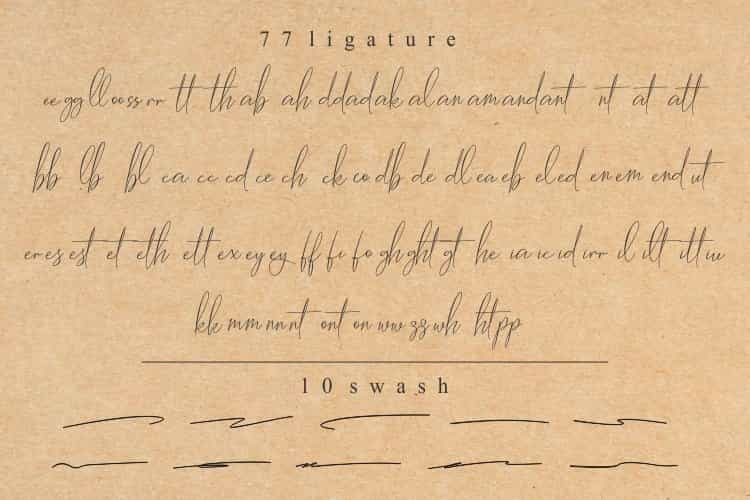 77 ligature
ee gg ll oo ss rr tt th ab ah dd ad ak al an am and ant nt at att
bb lb bl ca cc cd ce ch ck co db de dl ea eb el ed en em end ut
er es est et eth ett ex ey ey ff fi fo gh ght gt he ia ic id irr il ilt itt iu
kk mm nn nt ont on ww zz wh ht pp
10 swash